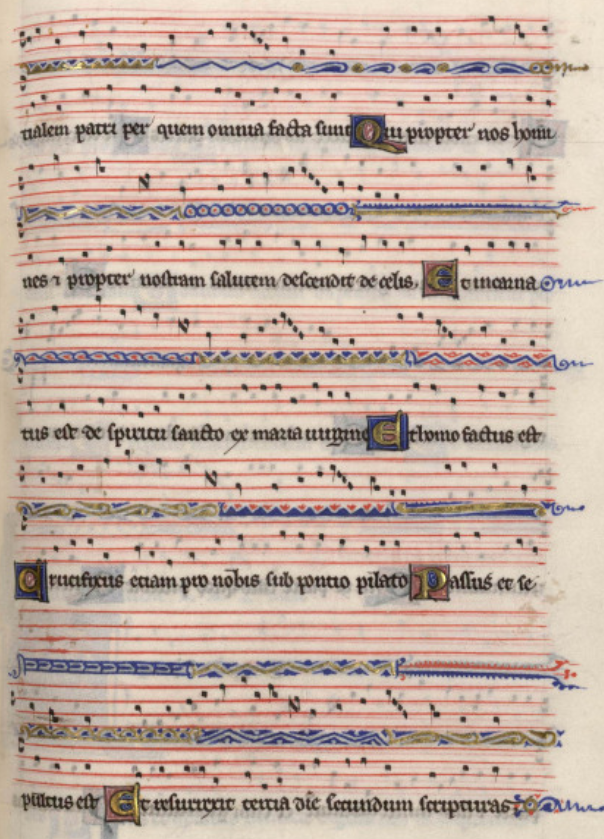 tialem patri per quem omnia facta sunt Qui propter nos homi
nes ⁊ propter nostram salutem descendit de celis. Et incarna
tus est de spiritu sancto ex maria uirgine Et homo factus est
Crucifixus etiam pro nobis sub pontio pilato Passus et se
pultus est Et resurrexit tertia die secundum scripturas